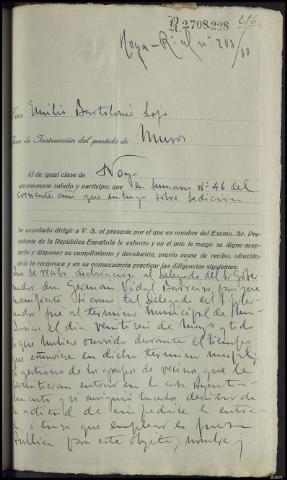 R.2708,228
256
Noya - R. al nº 208/38
Don Emilio Bartolomé Lopo
Juez de Instrucción del partido de Muros
Al de igual clase de Noya
atentamente saludo y participo: que en sumario Nº 46 del
corriente año que instruyo sobre sedición
he acordado dirigir a V. S. el presente por el que en nombre del Excmo. Sr. Pre-
sidente de la República Española le exhorto y en el mío le ruego se digne acep-
tarlo y disponer su cumplimiento y devolución, previo acuse de recibo, ofrecién-
dole la recíproca y en su consecuencia practicar las diligencias siguientes:
Que se reciba declaración al Delegado del Gober-
nador Don German Vidal Barreiro, para que
manifieste si como tal Delegado del Gober-
nador fué al termino municipal de
el dia veintitres de Mayo y todo
lo que hubiere ocurrido durante el tiempo
que estuviere en dicho termino
gestiones de los grupos de vecinos que le
permitieran entrar en la casa Ayunta-
miento y si alguien hacía dentro de
actitud de impedirle la entra-
da ó tuvo que emplear la fuerza
pública para este objeto, nombre y